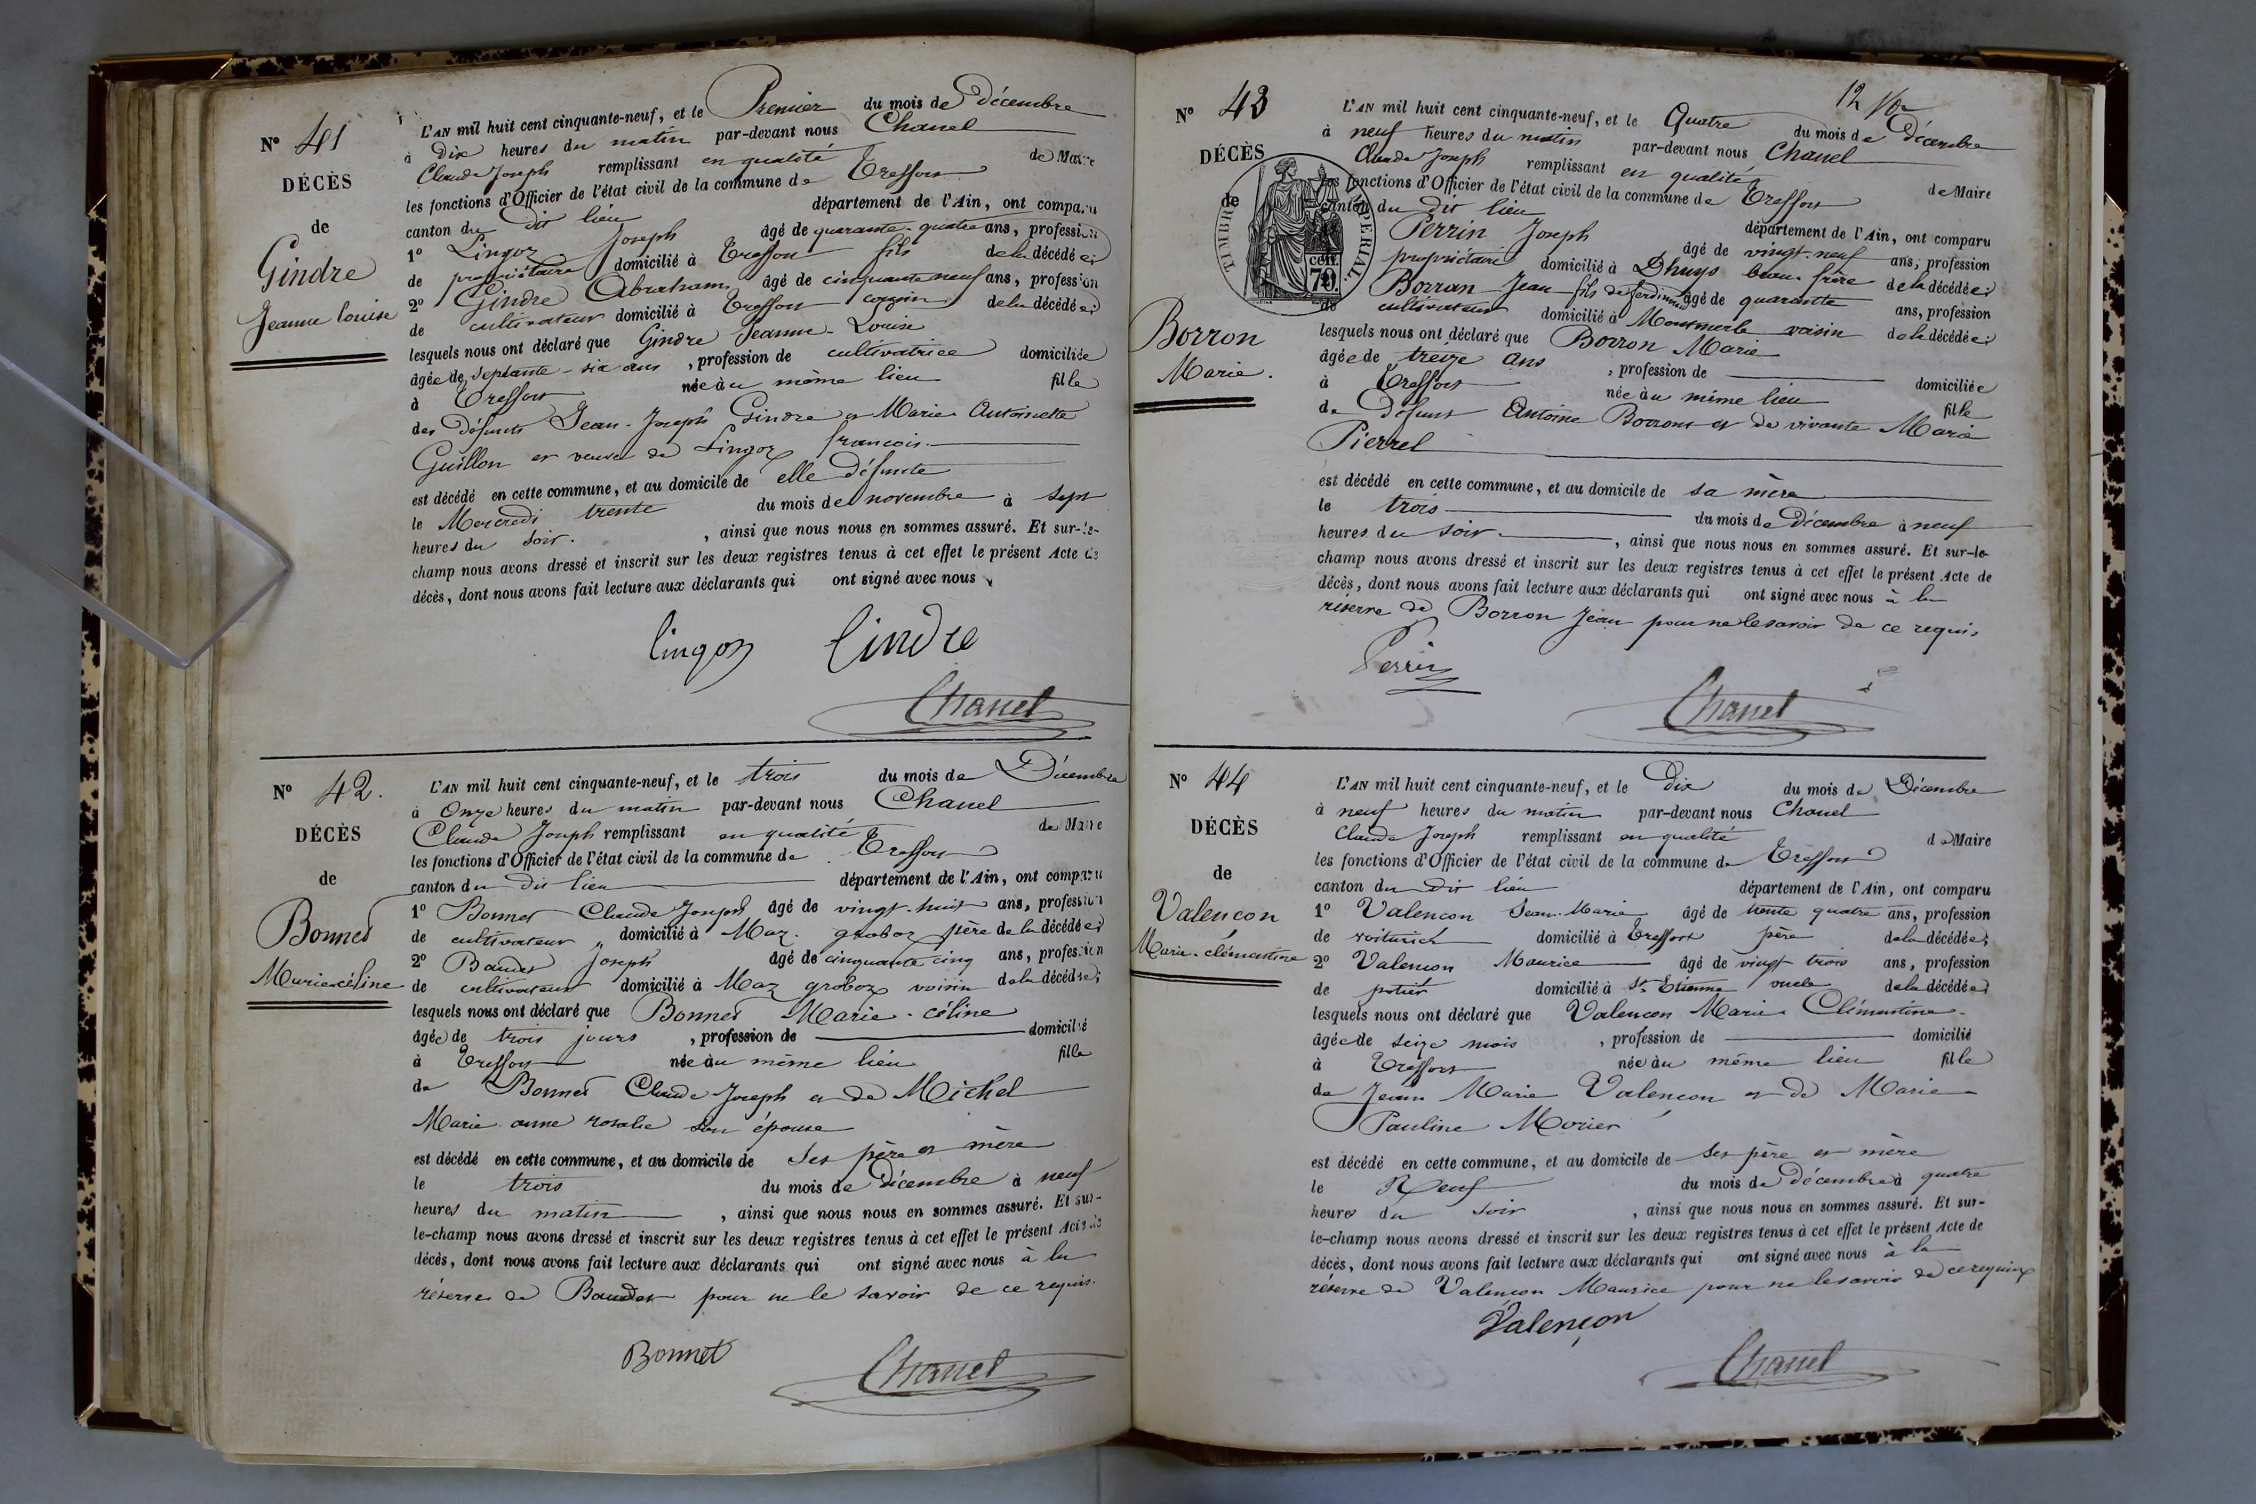 N° 41
DÉCÈS
de
Gindre
Jeanne Louise
L'AN mil huit cent cinquante-neuf, et le Premier du mois de Décembre
à Dix heures du matin par-devant nous Chanel
Claude Joseph remplissant en qualité de Maire
les fonctions d'Officier de l'état civil de la commune de Treffort
canton du dit lieu département de l'Ain, ont comparu
1° Lingoz Joseph âgé de quarante-quatre ans, profession
de propriétaire domicilié à Treffort fils de la décédée;
2° Gindre Abraham âgé de cinquante neuf ans, profession
de cultivateur domicilié à Treffort cousin de la décédée;
lesquels nous ont déclaré que Gindre Jeanne-Louise
âgée de Septante-six ans, profession de cultivatrice domiciliée
à Treffort née au même lieu fille
des défunts Jean-Joseph Gindre et Marie Antoinette
Guillon et veuve de Lingoz françois
est décédé en cette commune, et au domicile de elle défunte
le Mercredi trente du mois de novembre à sept
heures du soir, ainsi que nous nous en sommes assuré. Et sur-le-
champ nous avons dressé et inscrit sur les deux registres tenus à cet effet le présent Acte de
décès, dont nous avons fait lecture aux déclarants qui ont signé avec nous
Lingoz Gindre
Chanel
N° 42.
DÉCÈS
de
Bonnet
Marie céline
L'AN mil huit cent cinquante-neuf, et le trois du mois de Décembre
à Onze heures du matin par-devant nous Chanel
Claude Joseph remplissant en qualité de Maire
les fonctions d'Officier de l'état civil de la commune de Treffort
canton du dit lieu département de l'Ain, ont comparu
1° Bonnet Claude Joseph âgé de vingt-huit ans, profession
de cultivateur domicilié à Maz groboz père de la décédée;
2° Baudet Joseph âgé de cinquante cinq ans, profession
de cultivateur domicilié à Maz groboz voisin de la décédée;
lesquels nous ont déclaré que Bonnet Marie-céline
âgée de trois jours, profession de domicilié
à Treffort née au même lieu fille
de Bonnet Claude Joseph et de Michel
Marie anne rosalie son épouse
est décédé en cette commune, et au domicile de Ses père et mère
le trois du mois de Décembre à neuf
heures du matin, ainsi que nous nous en sommes assuré. Et sur-
le-champ nous avons dressé et inscrit sur les deux registres tenus à cet effet le présent Acte de
décès, dont nous avons fait lecture aux déclarants qui ont signé avec nous à la
réserve de Baudet pour ne le savoir de ce requis.
Bonnet
Chanel
12
N° 43
DÉCÈS
de
Borron
Marie.
TIMBRE IMPÉRIAL
CENT.
70.
L'AN mil huit cent cinquante-neuf, et le Quatre du mois de Décembre
à neuf heures du matin par-devant nous Chanel
Claude Joseph remplissant en qualité de Maire
les fonctions d'Officier de l'état civil de la commune de Treffort
canton du dit lieu département de l'Ain, ont comparu
Perrin Joseph âgé de vingt-neuf ans, profession
propriétaire domicilié à Dhuys beau-frère de la décédée;
Borran Jean fils de ferdinand âgé de quarante ans, profession
de cultivateur domicilié à Montmerle voisin de la décédée;
lesquels nous ont déclaré que Borron Marie
âgée de treize ans, profession de domiciliée
à Treffort née au même lieu fille
de défunt Antoine Borron et de vivante Marie
Pierrel
est décédé en cette commune, et au domicile de sa mère
le trois du mois de Décembre à neuf
heures du soir, ainsi que nous nous en sommes assuré. Et sur-le-
champ nous avons dressé et inscrit sur les deux registres tenus à cet effet le présent Acte de
décès, dont nous avons fait lecture aux déclarants qui ont signé avec nous à la
réserve de Borron Jean pour ne le savoir de ce requis
Perrin
Chanel
N° 44
DÉCÈS
de
Valençon
Marie-clémentine
L'AN mil huit cent cinquante-neuf, et le Dix du mois de Décembre
à neuf heures du matin par-devant nous Chanel
Claude Joseph remplissant en qualité de Maire
les fonctions d'Officier de l'état civil de la commune de Treffort
canton du dit lieu département de l'Ain, ont comparu
1° Valencon Jean-Marie âgé de trente quatre ans, profession
de voiturier domicilié à Treffort père de la décédée;
2° Valencon Maurice âgé de vingt trois ans, profession
de potier domicilié à St Etienne oncle de la décédée;
lesquels nous ont déclaré que Valencon Marie Clémentine
âgée de seize mois, profession de domicilié
à Treffort née au même lieu fille
de Jean Marie Valencon et de Marie
Pauline Morier
est décédé en cette commune, et au domicile de Ses père et mère
le Neuf du mois de Décembre à quatre
heures du soir, ainsi que nous nous en sommes assuré. Et sur-
le-champ nous avons dressé et inscrit sur les deux registres tenus à cet effet le présent Acte de
décès, dont nous avons fait lecture aux déclarants qui ont signé avec nous à la
réserve de Valençon Maurice pour ne le savoir de ce requis
Valençon
Chanel